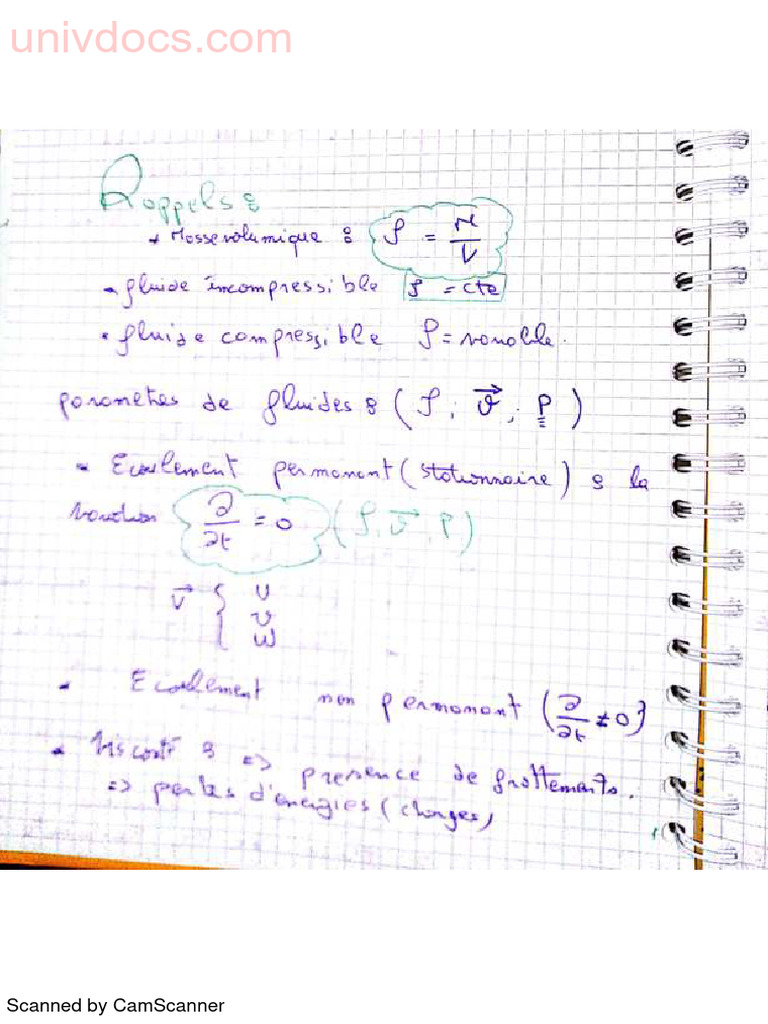 univdocs.com
Rappels :
Masse volumique : ρ = M/V
• fluide incompressible ρ = cte
• fluide compressible ρ = variable.
parametres de fluides : (ρ, v⃗, p)
• Ecoulement permanent (stationnaire) : la
variation ∂/∂t = 0 (ρ, v⃗, p)
v⃗ { u
v
w
• Ecoulement non permanent (∂/∂t ≠ 0)
• Viscosité : => presence de frottements.
=> pertes d'energies (charges)
Scanned by CamScanner